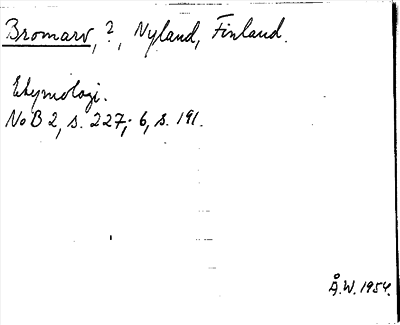 Bromarv, ?, Nyland, Finland.
Etymologi.
NoB 2, s. 227; 6, s. 191.
Å.W. 1954.